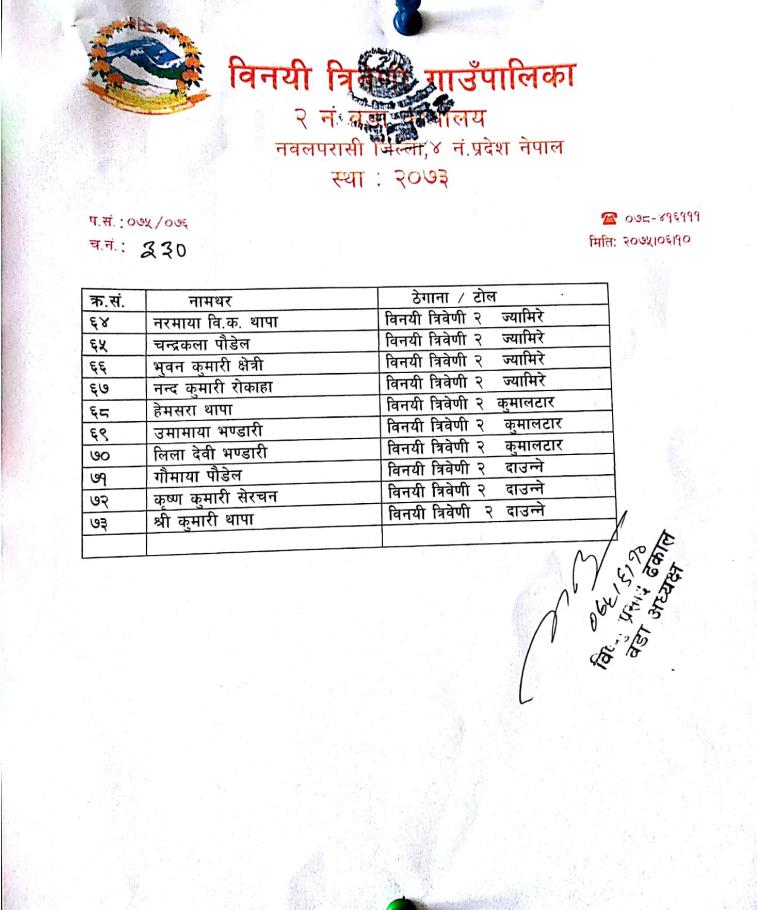 विनयी त्रिवेणी गाउँपालिका
२ नं. वडा कार्यालय
नवलपरासी जिल्ला,४ नं.प्रदेश नेपाल
स्था : २०७३
प.सं.:०७५/०७६ ☎ ०७८-४१६१११
च.नं.: ३३० मिति: २०७५।०६।१०
क्र.सं. नामथर ठेगाना / टोल
६४ नरमाया वि.क. थापा विनयी त्रिवेणी २ ज्यामिरे
६५ चन्द्रकला पौडेल विनयी त्रिवेणी २ ज्यामिरे
६६ भुवन कुमारी क्षेत्री विनयी त्रिवेणी २ ज्यामिरे
६७ नन्द कुमारी रोकाहा विनयी त्रिवेणी २ ज्यामिरे
६८ हेमसरा थापा विनयी त्रिवेणी २ कुमालटार
६९ उमामाया भण्डारी विनयी त्रिवेणी २ कुमालटार
७० लिला देवी भण्डारी विनयी त्रिवेणी २ कुमालटार
७१ गौमाया पौडेल विनयी त्रिवेणी २ दाउन्ने
७२ कृष्ण कुमारी सेरचन विनयी त्रिवेणी २ दाउन्ने
७३ श्री कुमारी थापा विनयी त्रिवेणी २ दाउन्ने
०७५।६।१०
प्रसाद ढकाल
वडा अध्यक्ष